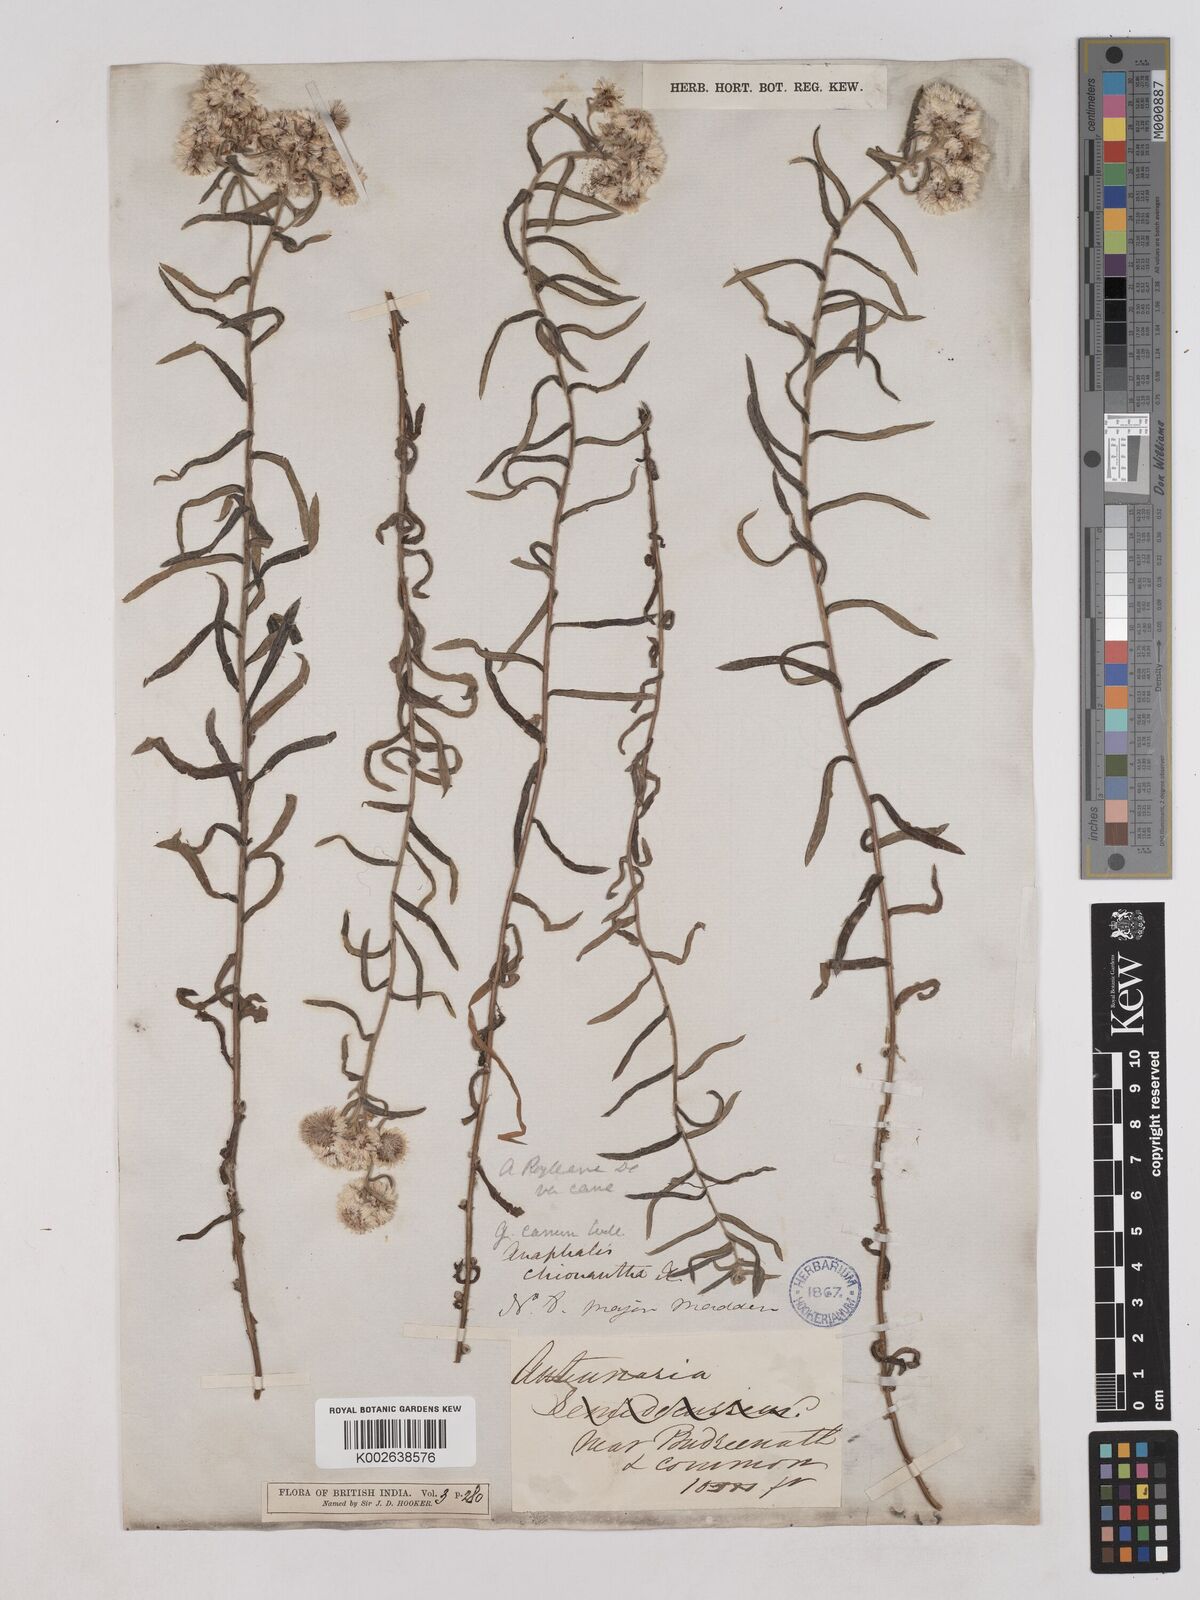 HERB. HORT. BOT. REG. KEW.
A Royleana DC
var cana
G. canum Wall.
Anaphalis
chionantha DC.
No. 8. Major Madden
HERBARIUM
1867.
HOOKERIANUM
Antennaria
Semidecurrens?
Near Budreenath
& common
10000 ft
ROYAL BOTANIC GARDENS KEW
K002638576
FLORA OF BRITISH INDIA. Vol. 3 P. 280
Named by Sir J. D. HOOKER.
centimeters
inches
M000887
Don Williams
Density
All values are averages
Royal Botanic Gardens
Kew
0 1 2 3 4 5 6 7 8 9 10
cm
copyright reserved